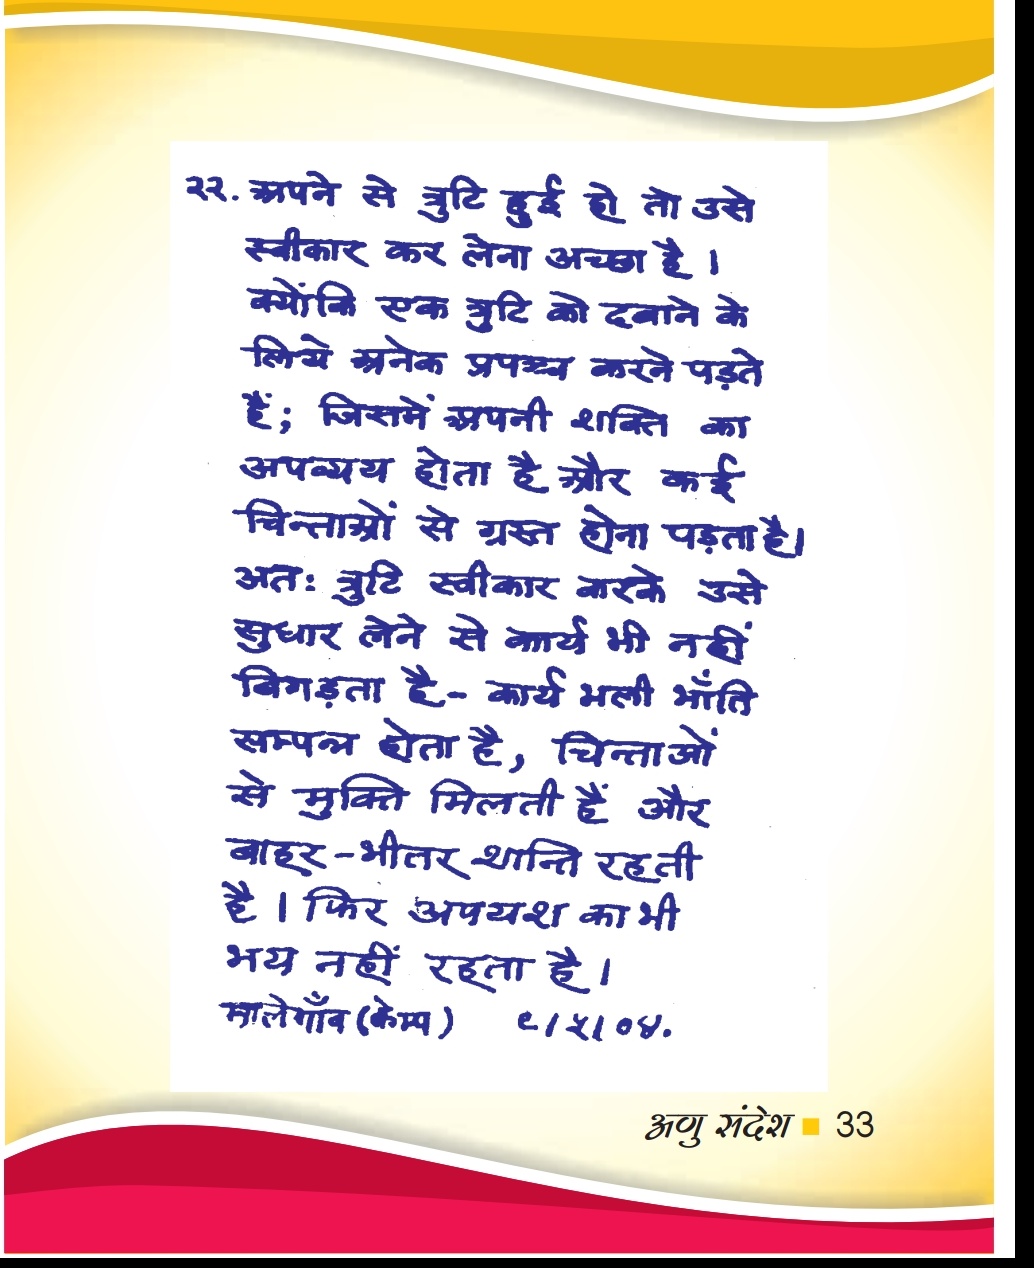 २२. अपने से त्रुटि हुई हो तो उसे
स्वीकार कर लेना अच्छा है ।
क्योंकि एक त्रुटि को दबाने के
लिये अनेक प्रपञ्च करने पड़ते
हैं; जिसमें अपनी शक्ति का
अपव्यय होता है और कई
चिन्ताओं से ग्रस्त होना पड़ता है।
अतः त्रुटि स्वीकार करके उसे
सुधार लेने से कार्य भी नहीं
बिगड़ता है - कार्य भली भाँति
सम्पन्न होता है, चिन्ताओं
से मुक्ति मिलती हैं और
बाहर - भीतर शान्ति रहती
है । फिर अपयश का भी
भय नहीं रहता है ।
मालेगाँव (केम्प) ९।५।०४.
अणु संदेश 33